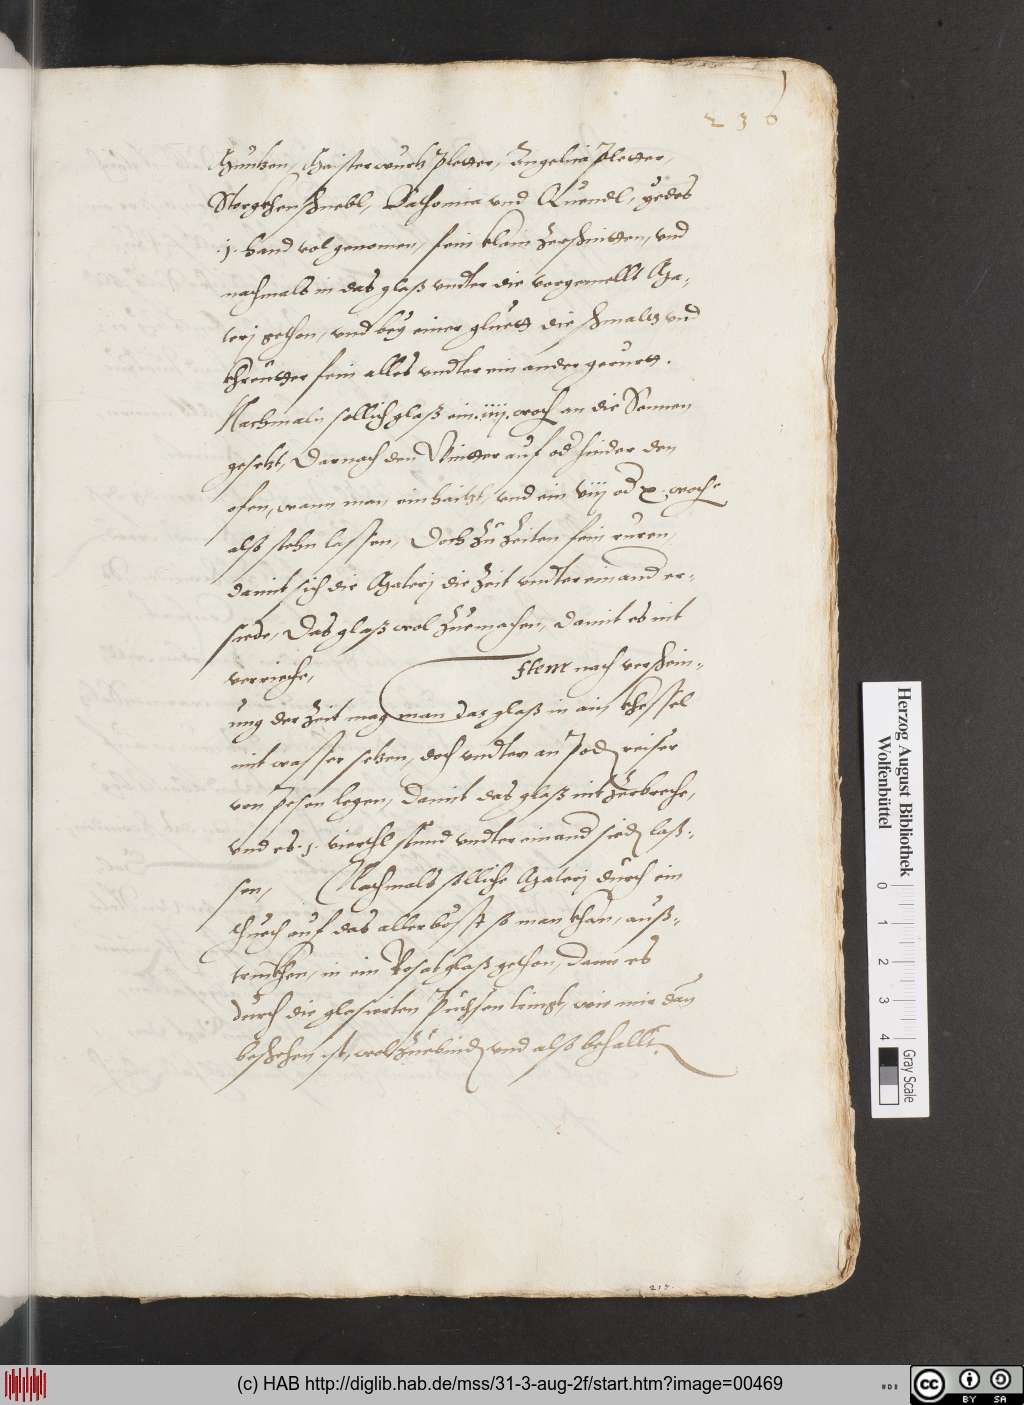 236
Huntzen, Maisterwurtz Pletter, Angelica Pletter,
Storgkhenschnebl, Bathonica und Quendl, yedes
.j. hand vol genomen, fein klain zerschnitten, und
nachmals in das glaß undter die vorgemellt Ma-
terj gethon, und bey einer gluett die schmaltz und
khreutter fein alles undter ein ander geruett.
Nachmaln sollich glaß ein .iiij. woch an die Sonnen
gesetzt, Darnach den Wintter auf od hinder den
ofen, wann man ein haitzt, und ein viij od x. wochn
alß stehn lassen, Doch zu Zeiten fein ruren,
damit sich die Materj die Zeit undter einand er-
siede, Das glaß wol zuemachen, damit es nit
verrieche,
Item nach verschein-
ung der Zeit mag man das glaß in ain khessel
mit wasser setzen, doch undten an Podn reiser
von Pesen legen, damit das glaß nit zerbreche,
und es .j. vierthl stund undter einand siedn laß-
sen, Nachmals solliche Materj durch ein
thuech auf das aller böst so man khan, auß-
trinkhen, in ein glaß gethon, dann es
durch die glasierten Puchsen tringt, wie mir dan
beschehen ist, wol zuebindn und alß behallten
217.
Herzog August Bibliothek
Wolfenbüttel
0 1 2 3 4
Gray Scale
(c) HAB http://diglib.hab.de/mss/31-3-aug-2f/start.htm?image=00469
cc BY SA